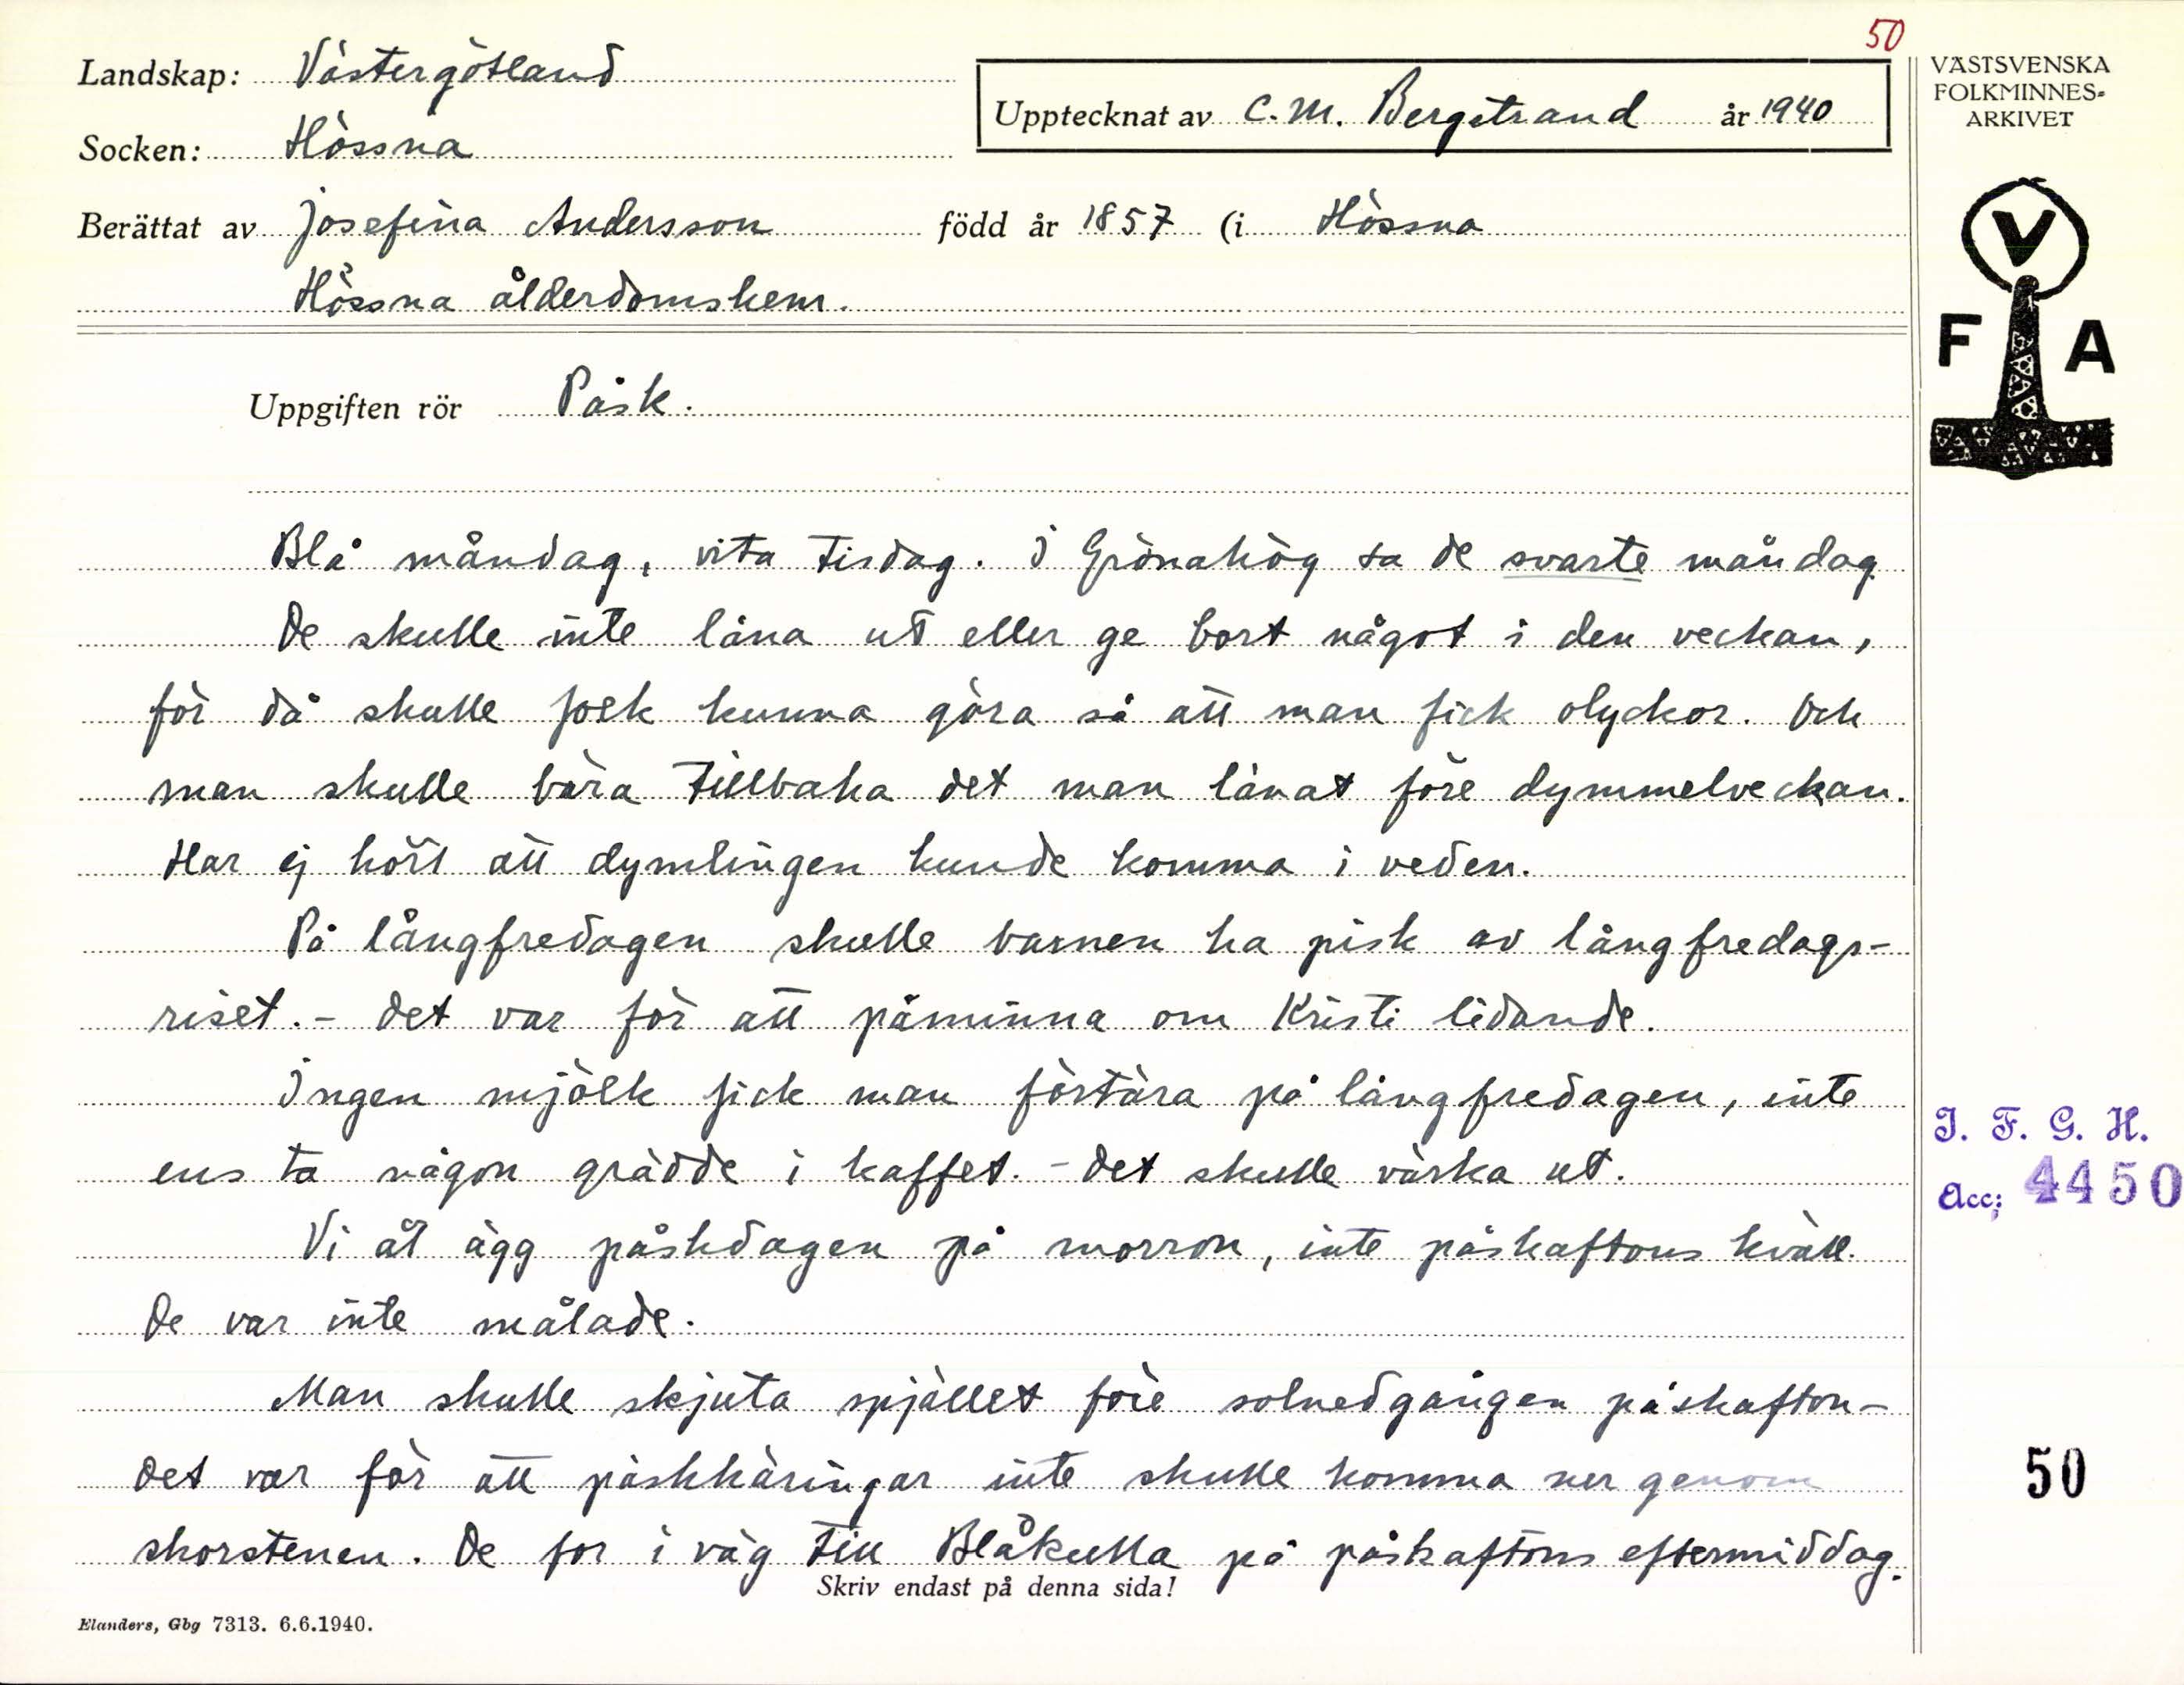 50
Landskap: Västergötland
Upptecknat av C. M. Bergstrand år 1940
Socken: Hössna
Berättat av Josefina Andersson född år 1857 (i Hössna
Hössna ålderdomshem.
VÄSTSVENSKA
FOLKMINNES-
ARKIVET
V
F A
Uppgiften rör Påsk.
Blå måndag, vita tisdag. I Grönahög sa de svarte måndag
De skulle inte låna ut eller ge bort något i den veckan,
för då skulle folk kunna göra så att man fick olyckor. Och
man skulle bära tillbaka det man lånat före dymmelveckan.
Har ej hört att dymlingen kunde komma i veden.
På långfredagen skulle barnen ha pisk av långfredags-
riset. - det var för att påminna om Kristi lidande.
Ingen mjölk fick man förtära på långfredagen, inte
ens ta någon grädde i kaffet. - det skulle värka ut.
Vi åt ägg påskdagen på morron, inte påskaftons kväll.
De var inte målade.
Man skulle skjuta spjället före solnedgången påskafton -
det var för att påskkäringar inte skulle komma ner genom
skorstenen. De for i väg till Blåkulla på påskaftons eftermiddag.
Skriv endast på denna sida!
Elanders, Gbg 7313. 6.6.1940.
I. F. G. H.
Acc; 4450
50